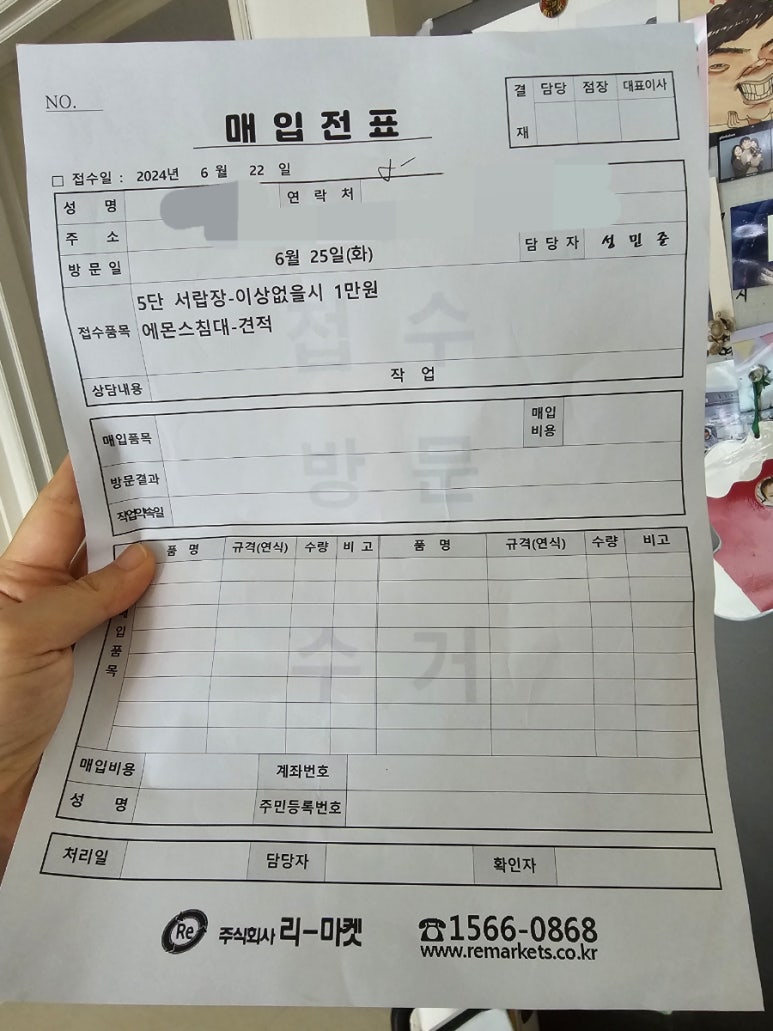 NO.
매 입 전 표
결 재 담당 점장 대표이사
□ 접수일 : 2024년 6 월 22 일
성 명 연 락 처
주 소
방 문 일 6월 25일(화) 담 당 자 성 민 준
접수품목 5단 서랍장-이상없을시 1만원
에몬스침대-견적
상담내용 작 업
접 수
매입품목 매입 비용
방문결과
방 문
작업약속일
품 명 규격(연식) 수량 비 고 품 명 규격(연식) 수량 비고
매 입 품 목
수 거
매입비용 계좌번호
성 명 주민등록번호
처리일 담당자 확인자
Re 주식회사 리-마켓 ☎1566-0868
www.remarkets.co.kr